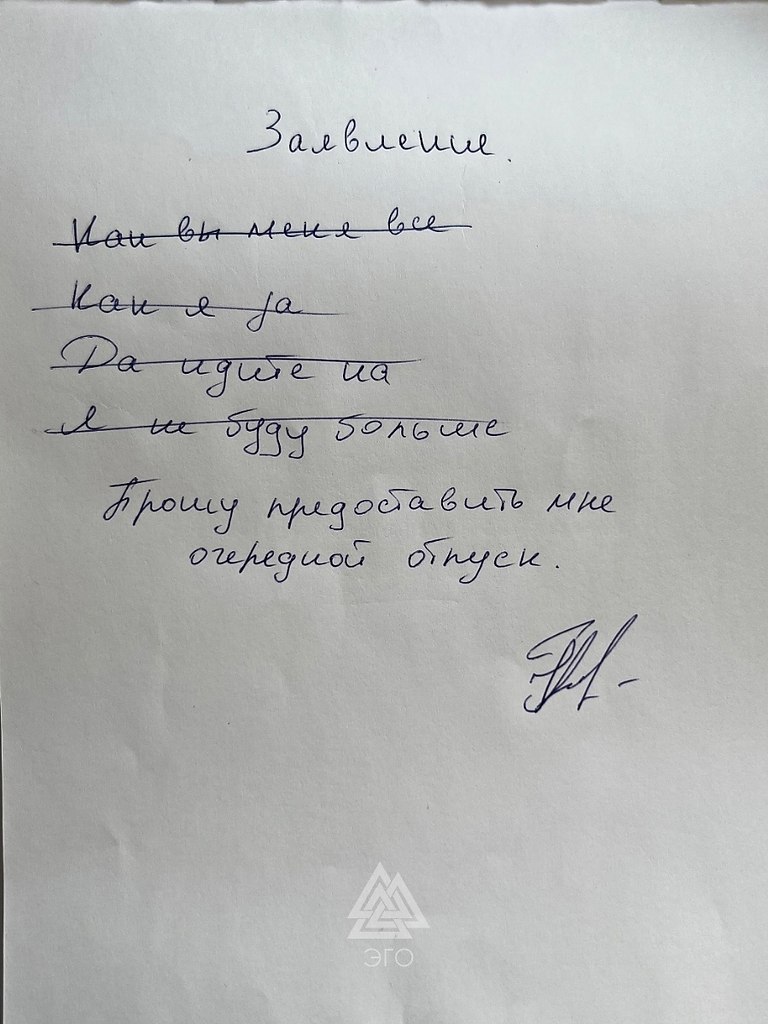 Заявление.
Как вы меня все
Как я за
Да идите на
Я не буду больше
Прошу предоставить мне
очередной отпуск.
ЭГО